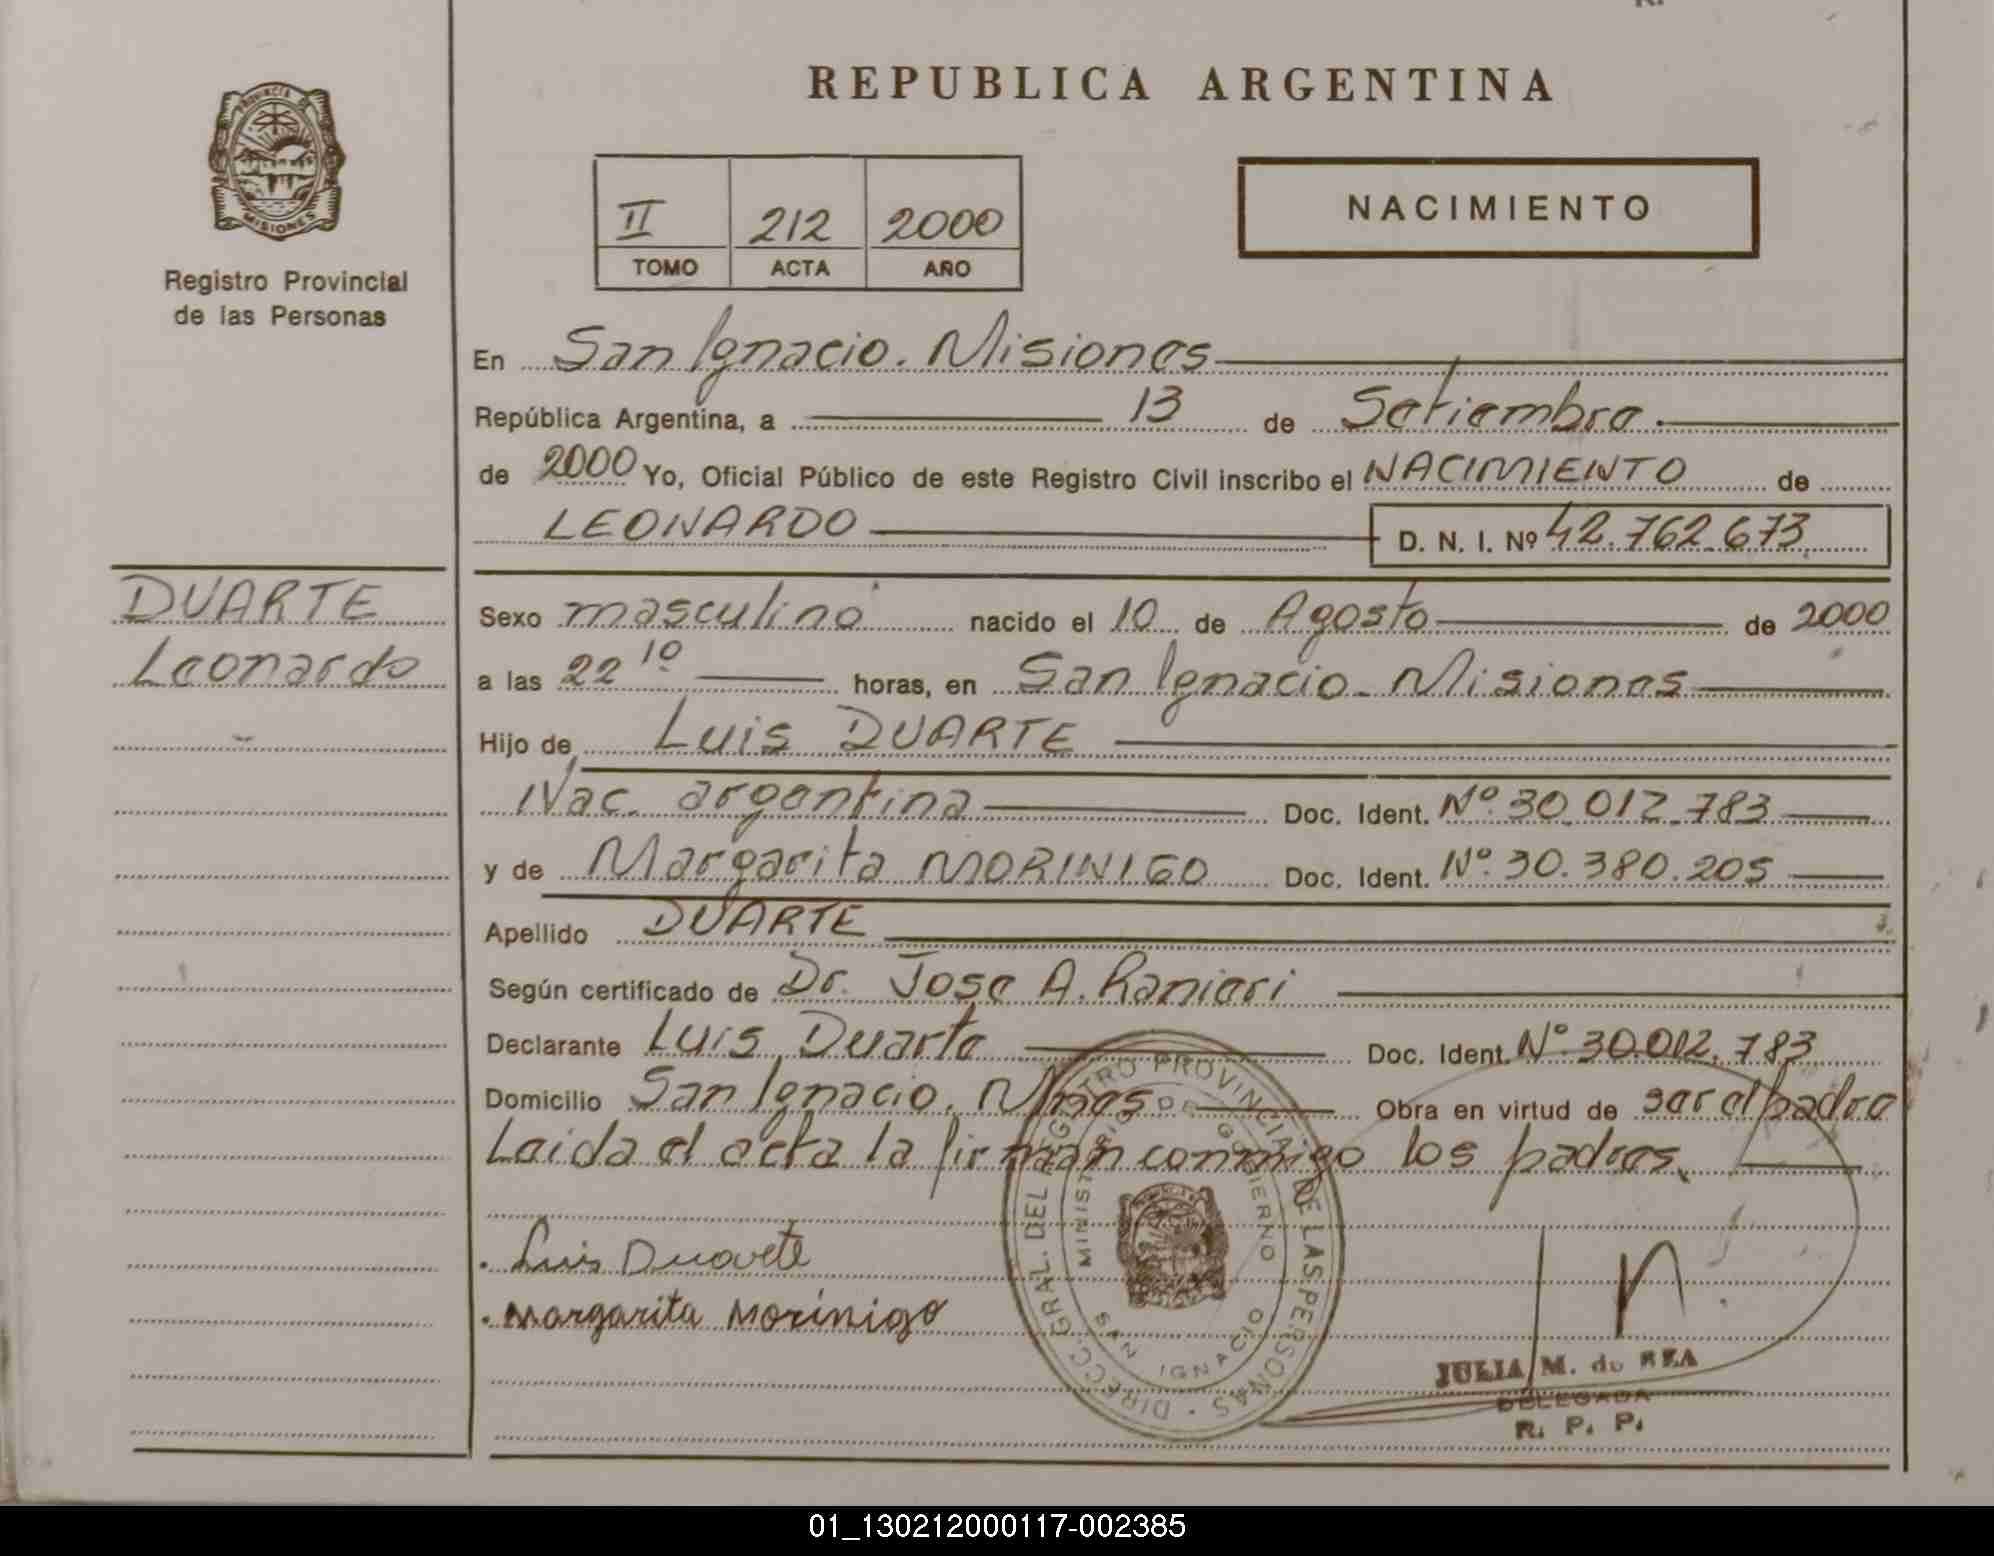 REPUBLICA ARGENTINA
PROVINCIA DE
MISIONES
Registro Provincial
de las Personas
II 212 2000
TOMO ACTA AÑO
NACIMIENTO
En San Ignacio. Misiones
República Argentina, a 13 de Setiembre.
de 2000 Yo, Oficial Público de este Registro Civil inscribo el NACIMIENTO de
LEONARDO D. N. I. Nº 42.762.673
DUARTE
Leonardo
Sexo masculino nacido el 10 de Agosto de 2000
a las 22 10 horas, en San Ignacio. Misiones
Hijo de Luis DUARTE
Nac. argentina Doc. Ident. Nº 30.012.783
y de Margarita MORINIGO Doc. Ident. Nº 30.380.205
Apellido DUARTE
Según certificado de Dr. Jose A. Ranieri
Declarante Luis Duarte Doc. Ident. Nº 30.012.783
Domicilio San Ignacio, Mnes Obra en virtud de ser el padre
Leida el acta la firman conmigo los padres.
Luis Duarte
Margarita Morínigo
DIRECC. GRAL. DEL REGISTRO PROVINCIAL DE LAS PERSONAS
MINISTERIO DE GOBIERNO
SAN IGNACIO
JULIA M. de REA
DELEGADA
R. P. P.
01_130212000117-002385